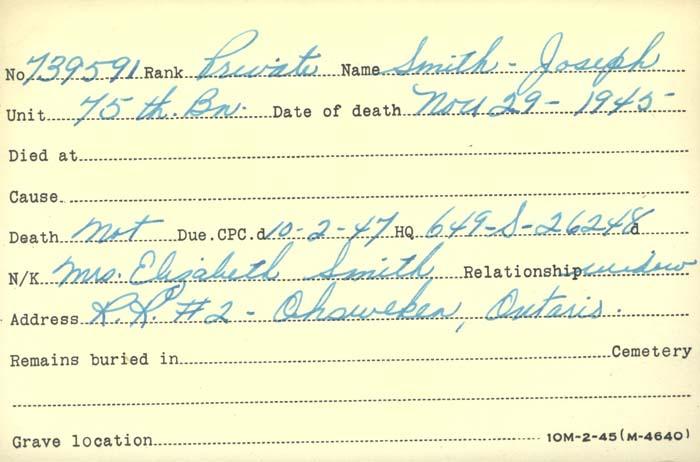 No. 739591 Rank Private Name Smith - Joseph
Unit 75th. Bn. Date of death Nov 29 - 1945
Died at
Cause
Death Not Due.CPC.d 10-2-47 HQ 649-S-26248 d
N/K Mrs. Elizabeth Smith Relationship widow
Address R.R. #2 - Ohsweken, Ontario.
Remains buried in Cemetery
Grave location 10M-2-45(M-4640)